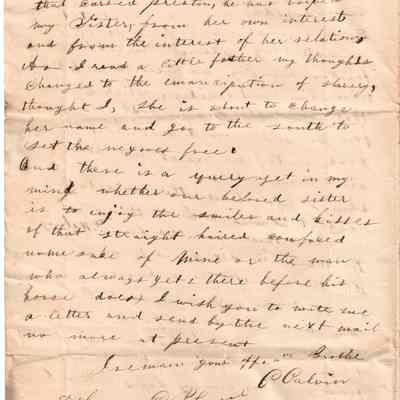 that cursed Preston, he has
my Sister, from her own interest
and from the interest of her relations
As I read a little father my thoughts
changed to the emancipation of slavery,
thought I, she is about to change
her name and go to the south to
set the negroes free.
And there is a query yet in my
mind whether our beloved sister
is to enjoy the smiles and kisses
of that straight haired
name sake of mine or the man
who always gets there before his
horse does I wish you to write me
a letter and send by the next mail
no more at present
I remain your Brother
C Calvin